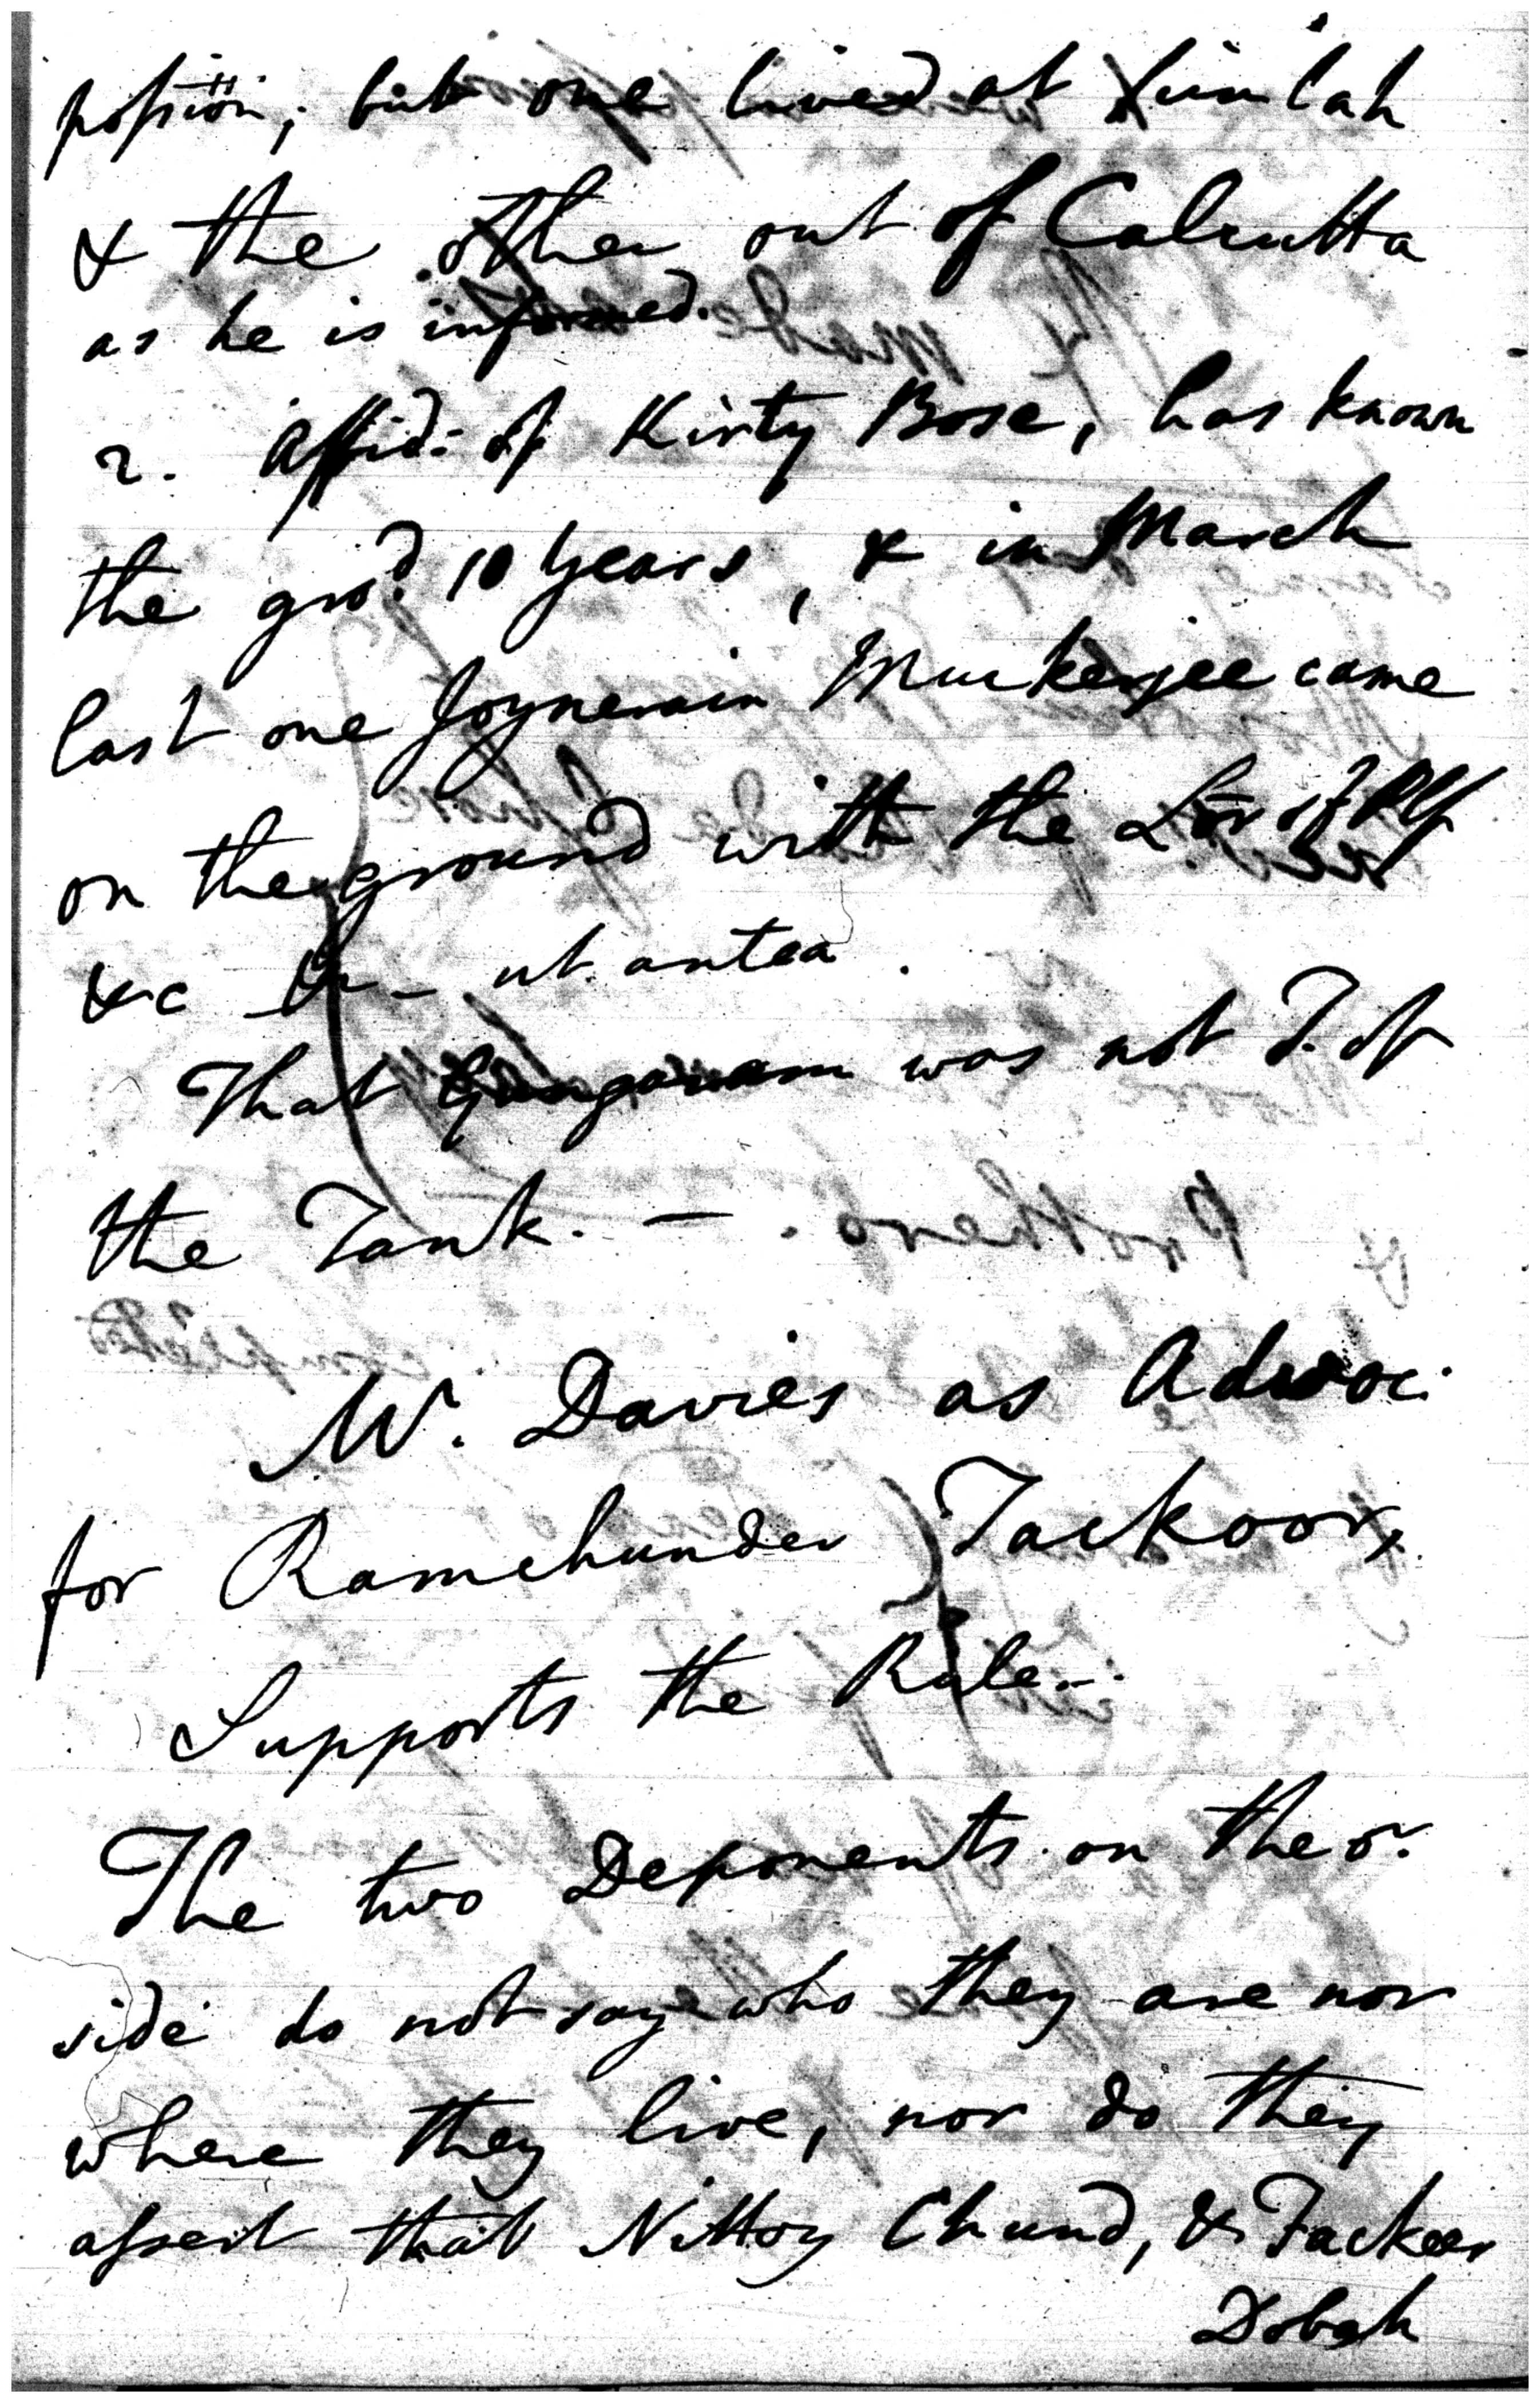 possion; but one lived at Simlah
& the other out of Calcutta
as he is informed.
2. Affid: of Kirty Bose, has known
the gro.d 10 Years, & in March
last one Joynerain Muckerjee came
on the ground with the Lor of Plf
&c &c – ut antea.
That Gungaram was not T. of
the Tank. —
Mr. Davies as Advoc:
for Ramchunder Tackoor,
Supports the Rule –.
The two Deponents on the or.
side do not say who they are nor
where they live, nor do they
assert that Nittoy Chund, & Fackeer
Dobah